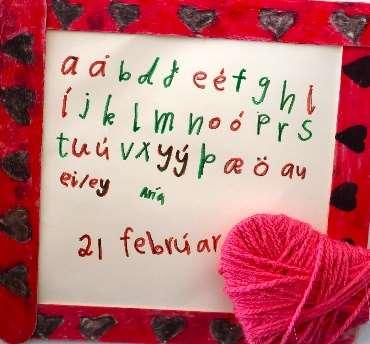 a á b d ð e é f g h i
í j k l m n o ó p r s
t u ú v x y ý þ æ ö au
ei/ey
Aría
21 febrúar